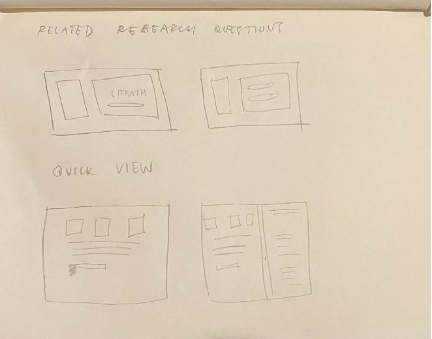 RELATED RESEARCH QUESTIONS
LITPATH
QUICK VIEW